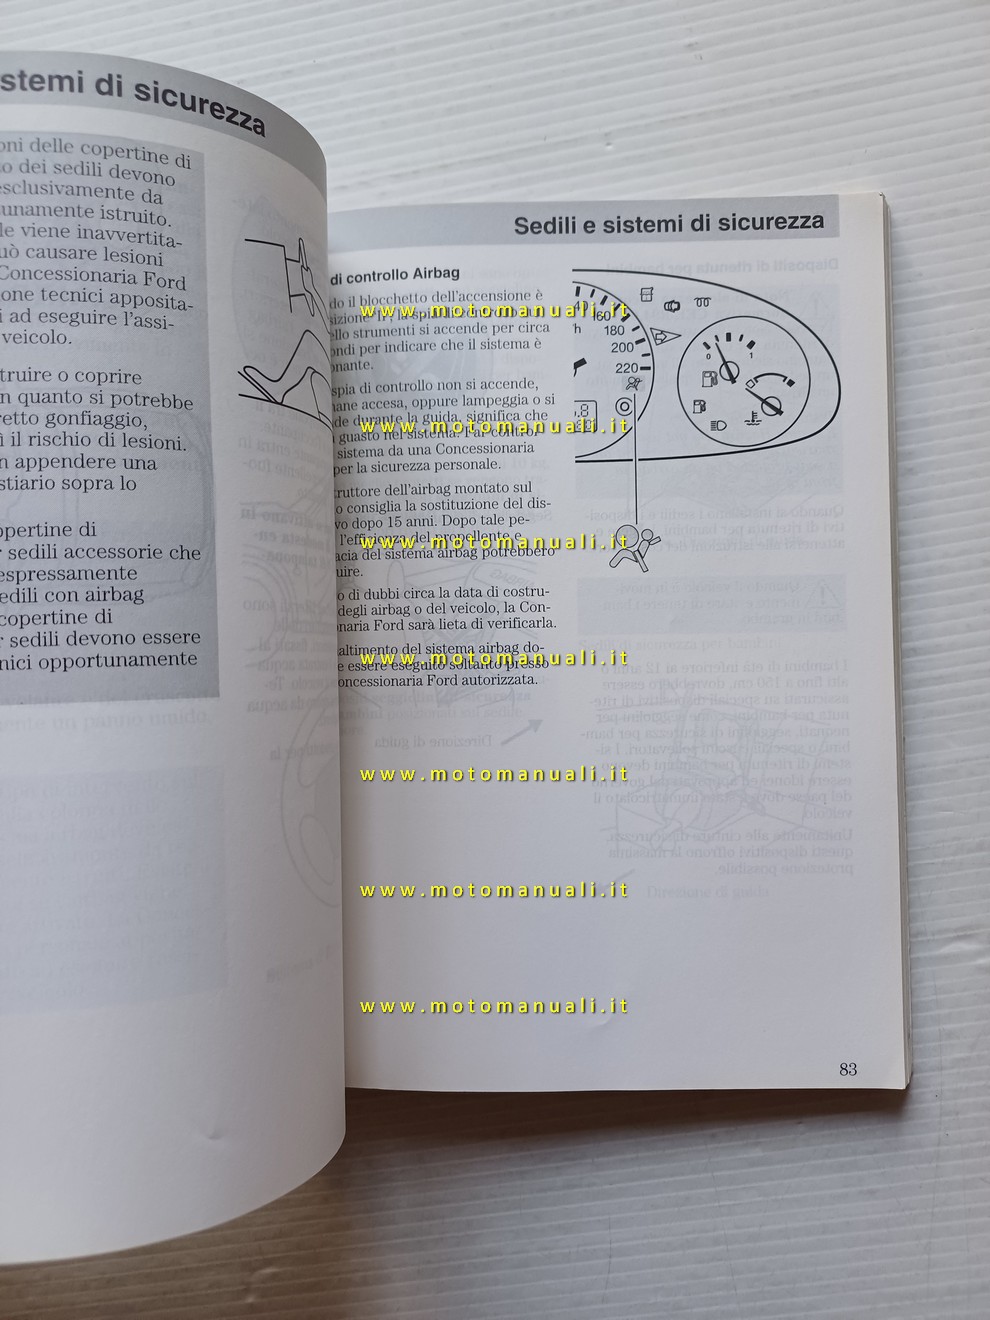 stemi di sicurezza
oni delle copertine di
to dei sedili devono
esclusivamente da
unamente istruito.
le viene inavvertita-
uò causare lesioni
Concessionaria Ford
one tecnici apposita-
i ad eseguire l'assi-
veicolo.
truire o coprire
n quanto si potrebbe
retto gonfiaggio,
ì il rischio di lesioni.
n appendere una
stiario sopra lo
opertine di
r sedili accessorie che
espressamente
edili con airbag
copertine di
r sedili devono essere
nici opportunamente
Sedili e sistemi di sicurezza
di controllo Airbag
do il blocchetto dell'accensione è
llo strumenti si accende per circa
ondi per indicare che il sistema è
onante.
spia di controllo non si accende,
ane accesa, oppure lampeggia o si
de durante la guida, significa che
guasto nel sistema. Far control-
sistema da una Concessionaria
per la sicurezza personale.
ruttore dell'airbag montato sul
o consiglia la sostituzione del dis-
vo dopo 15 anni. Dopo tale pe-
l'efficienza del propellente e
acia del sistema airbag potrebbero
uire.
o di dubbi circa la data di costru-
degli airbag o del veicolo, la Con-
naria Ford sarà lieta di verificarla.
altimento del sistema airbag do-
e essere eseguito soltanto presso
oncessionaria Ford autorizzata.
160
180
200
220
h
0 1
www.motomanuali.it
www.motomanuali.it
www.motomanuali.it
www.motomanuali.it
www.motomanuali.it
www.motomanuali.it
www.motomanuali.it
83